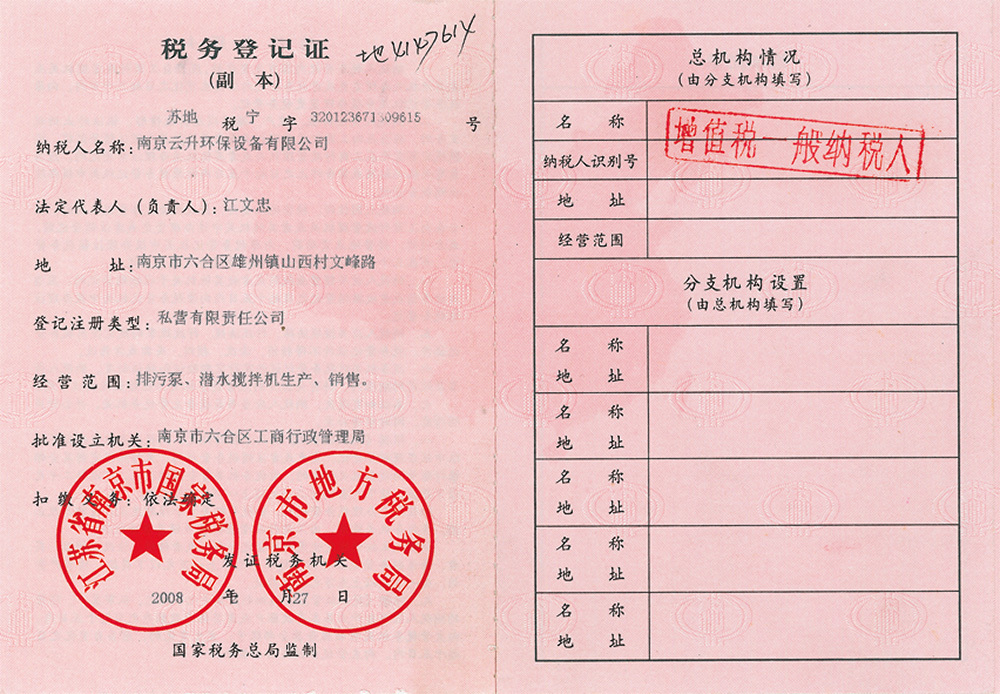 税务登记证
地4147614
(副 本)
苏地 税 宁 字 320123671309615 号
纳税人名称:南京云升环保设备有限公司
法定代表人(负责人):江文忠
地 址:南京市六合区雄州镇山西村文峰路
登记注册类型:私营有限责任公司
经营范围:排污泵、潜水搅拌机生产、销售。
批准设立机关:南京市六合区工商行政管理局
扣缴义务:依法确定
江苏省南京市国家税务局
南京市地方税务局
发证税务机关
2008 年 月27 日
国家税务总局监制
总机构情况
(由分支机构填写)
名 称
增值税一般纳税人
纳税人识别号
地 址
经营范围
分支机构设置
(由总机构填写)
名 称
地 址
名 称
地 址
名 称
地 址
名 称
地 址
名 称
地 址